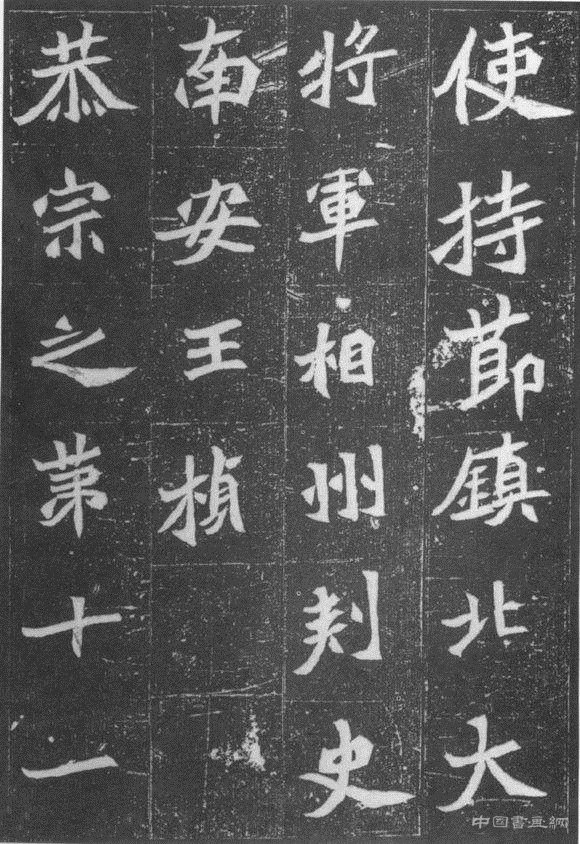 使持節鎮北大
將軍相州刾史
南安王楨
恭宗之第十一
中国書画網